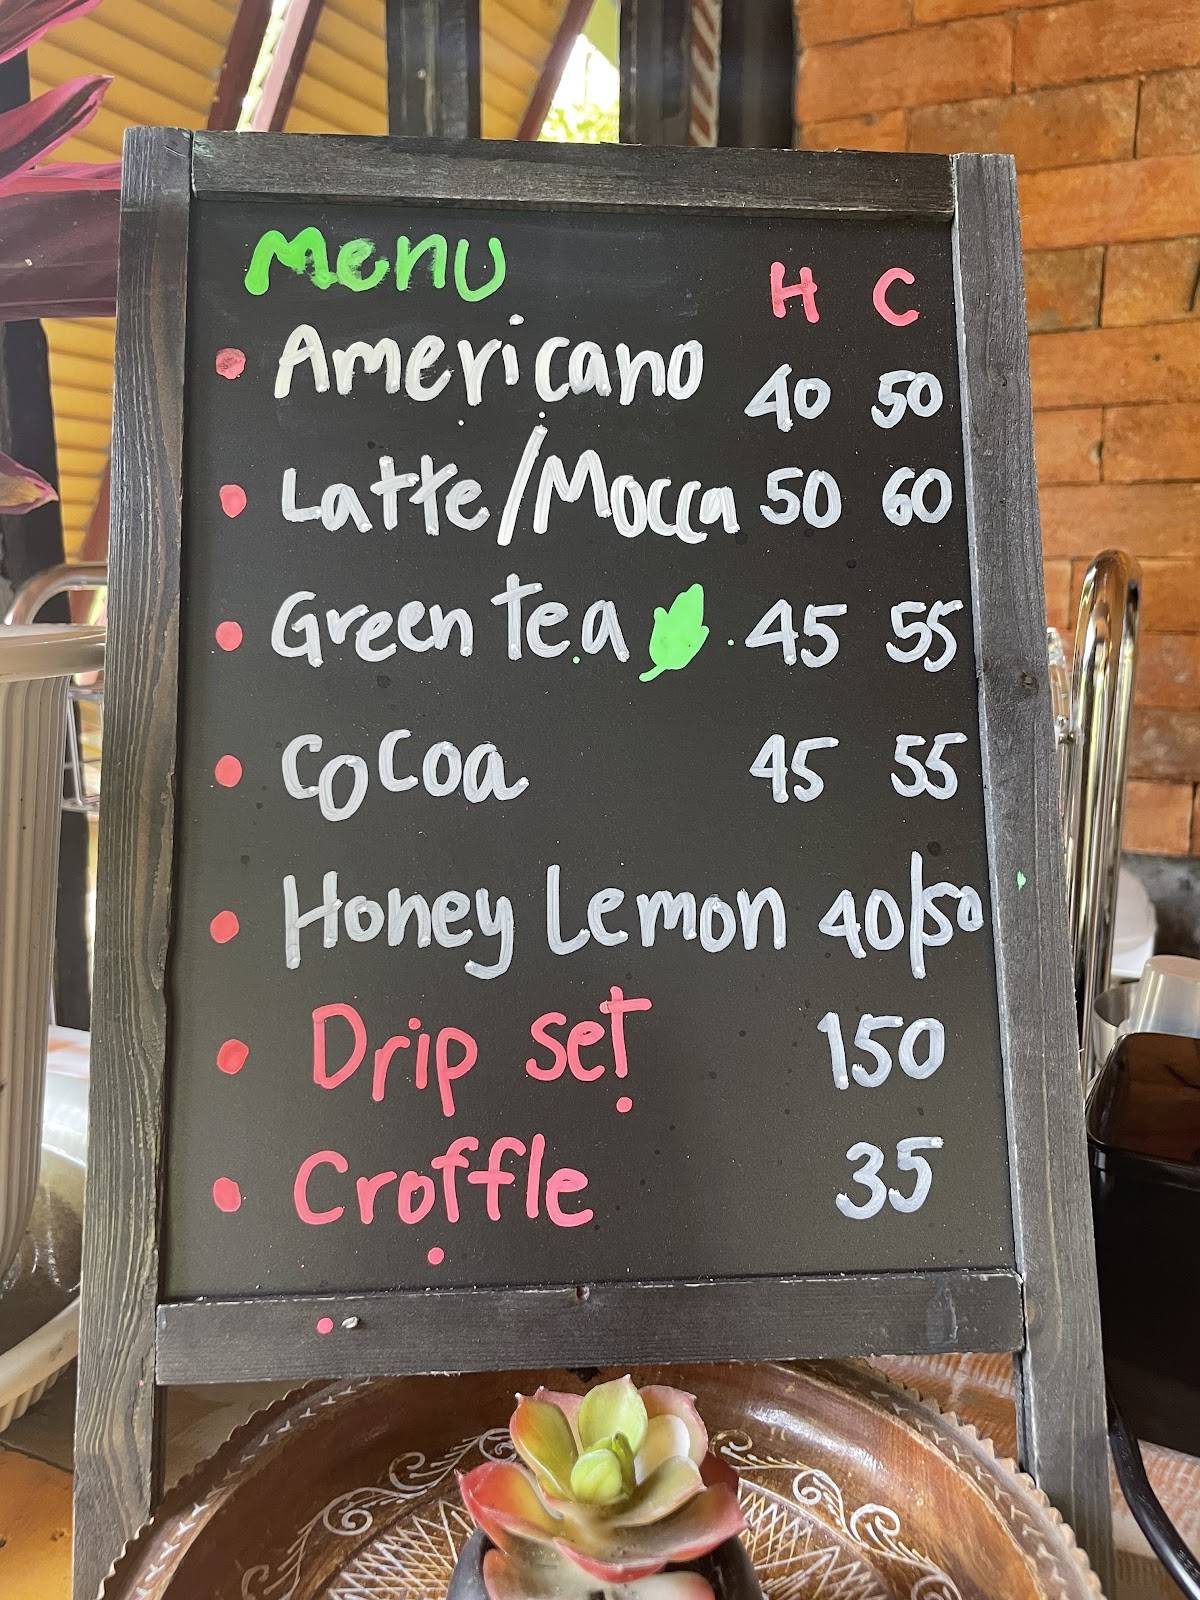 Menu H C
Americano 40 50
Latte/Mocca 50 60
Green Tea 45 55
Cocoa 45 55
Honey Lemon 40/50
Drip set 150
Croffle 35